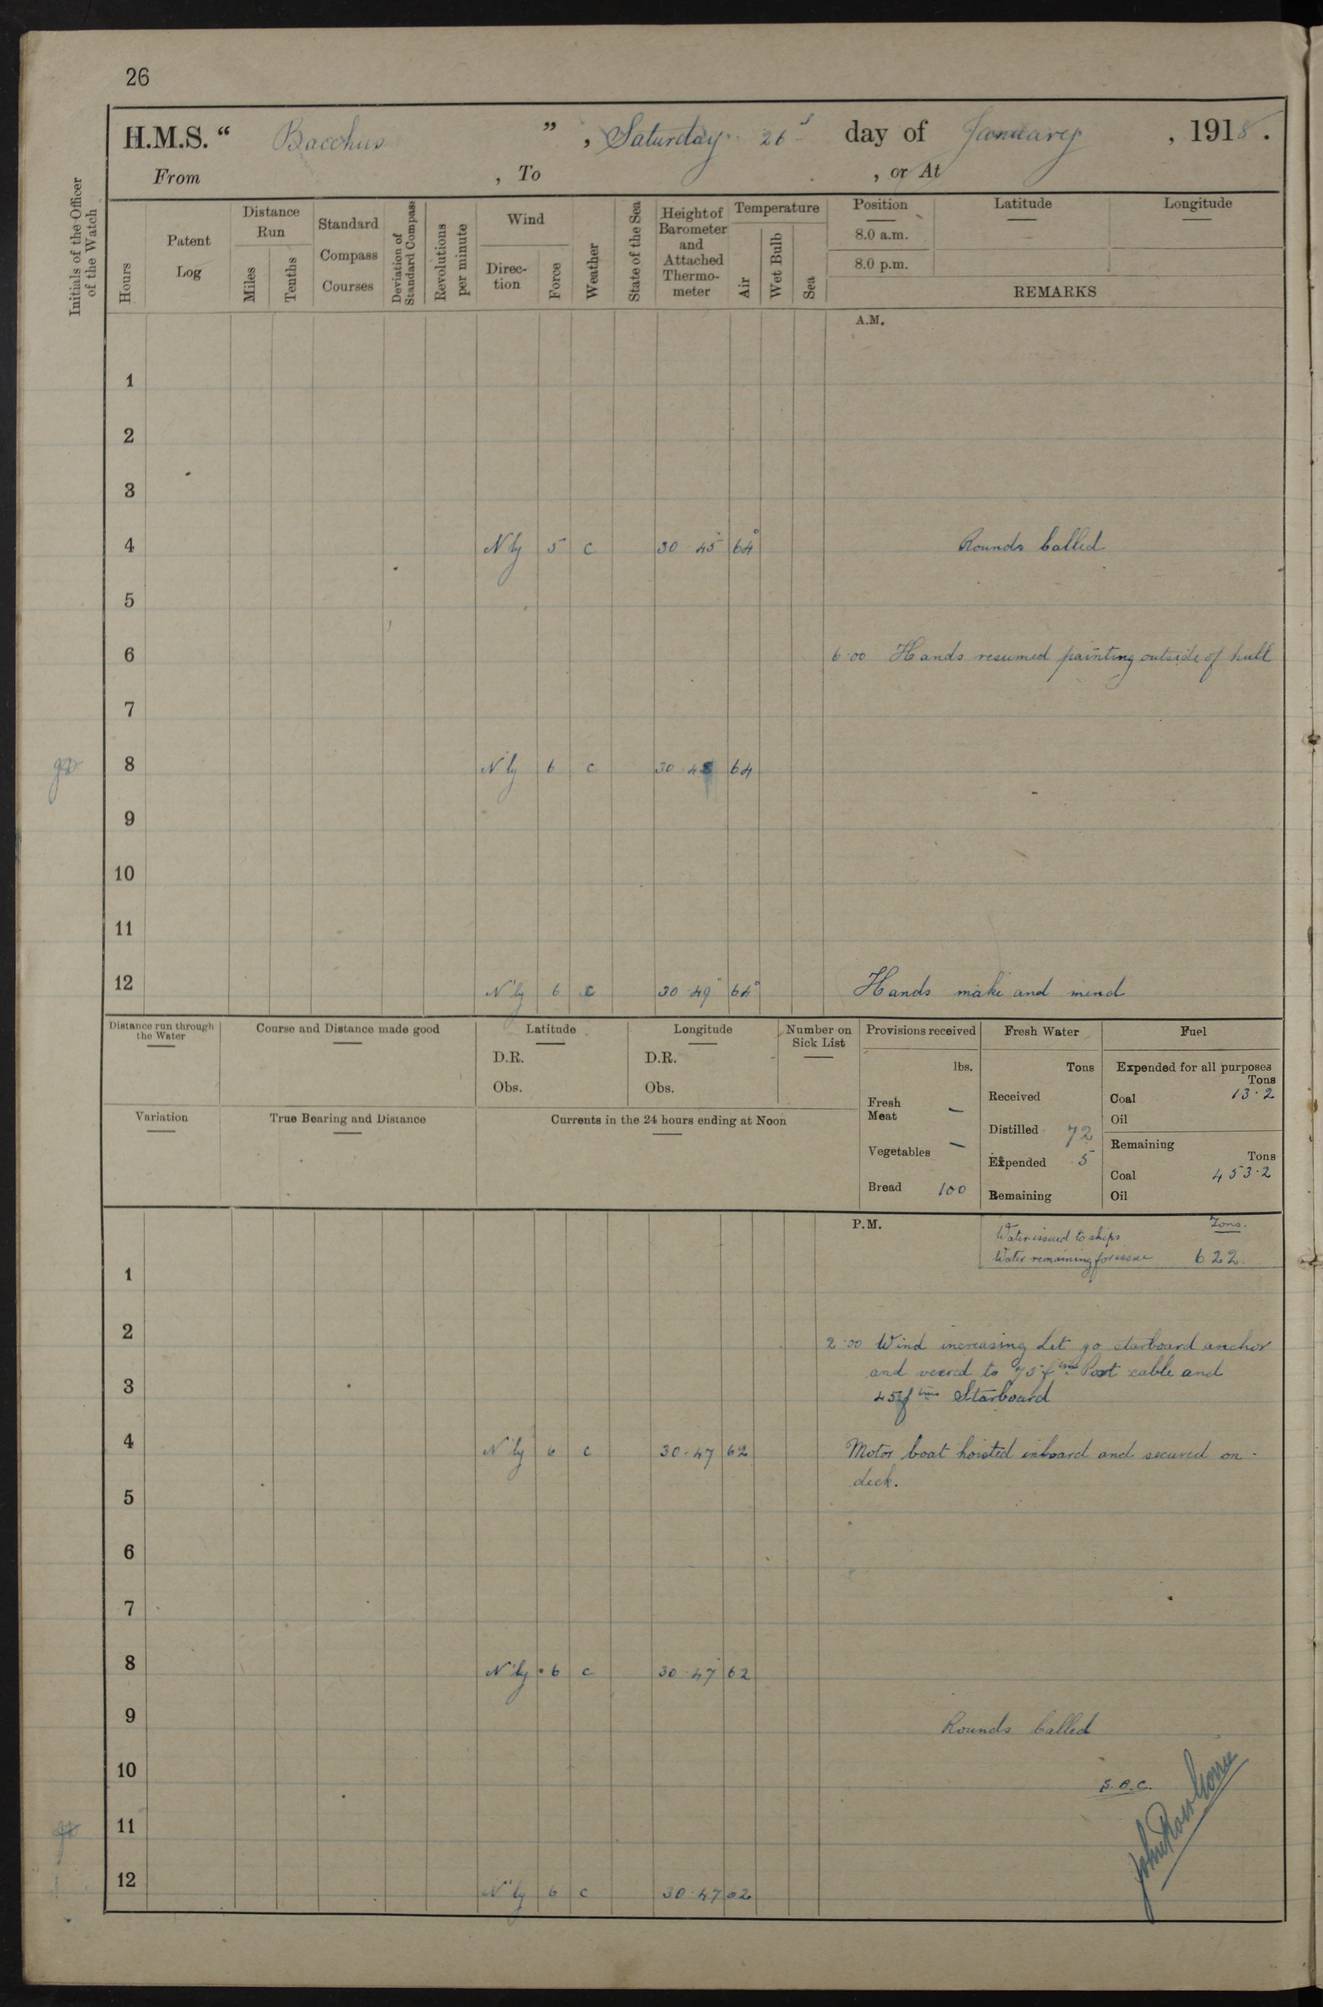 26
H.M.S. “ Bacchus ” , Saturday 26 day of January , 1918 .
From , To , or At
Initials of the Officer of the Watch
Hours
Patent Log
Distance Run
Miles
Tenths
Standard Compass Courses
Deviation of Standard Compass
Revolutions per minute
Wind
Direc-tion
Force
Weather
State of the Sea
Height of Barometer and Attached Thermo-meter
Temperature
Air
Wet Bulb
Sea
Position
8.0 a.m.
8.0 p.m.
Latitude
Longitude
REMARKS
A.M.
1
2
3
4 N'ly 5 c 30·45 64° Rounds Called
5
6 6·00 Hands resumed painting outside of hull
7
8 N'ly 6 c 30·48 64
9
10
11
12 N'ly 6 c 30·49 64° Hands make and mend
Distance run through the Water
Course and Distance made good
Latitude
D.R.
Obs.
Longitude
D.R.
Obs.
Number on Sick List
Variation
True Bearing and Distance
Currents in the 24 hours ending at Noon
Provisions received
lbs.
Fresh Meat —
Vegetables —
Bread 100
Fresh Water
Tons
Received
Distilled 72
Expended 5
Remaining
Fuel
Expended for all purposes
Tons
Coal 13·2
Oil
Remaining
Tons
Coal 453·2
Oil
P.M.
Tons.
Water issued to ships
Water remaining for issue 622
1
2 2·00 Wind increasing Let go starboard anchor
and veered to 75 fms Port cable and
3 45 fms Starboard
4 N'ly 6 c 30·47 62 Motor boat hoisted inboard and secured on
deck.
5
6
7
8 N'ly 6 c 30·47 62
9 Rounds Called
10 S.A.C.
11
12 N'ly 6 c 30·47 62